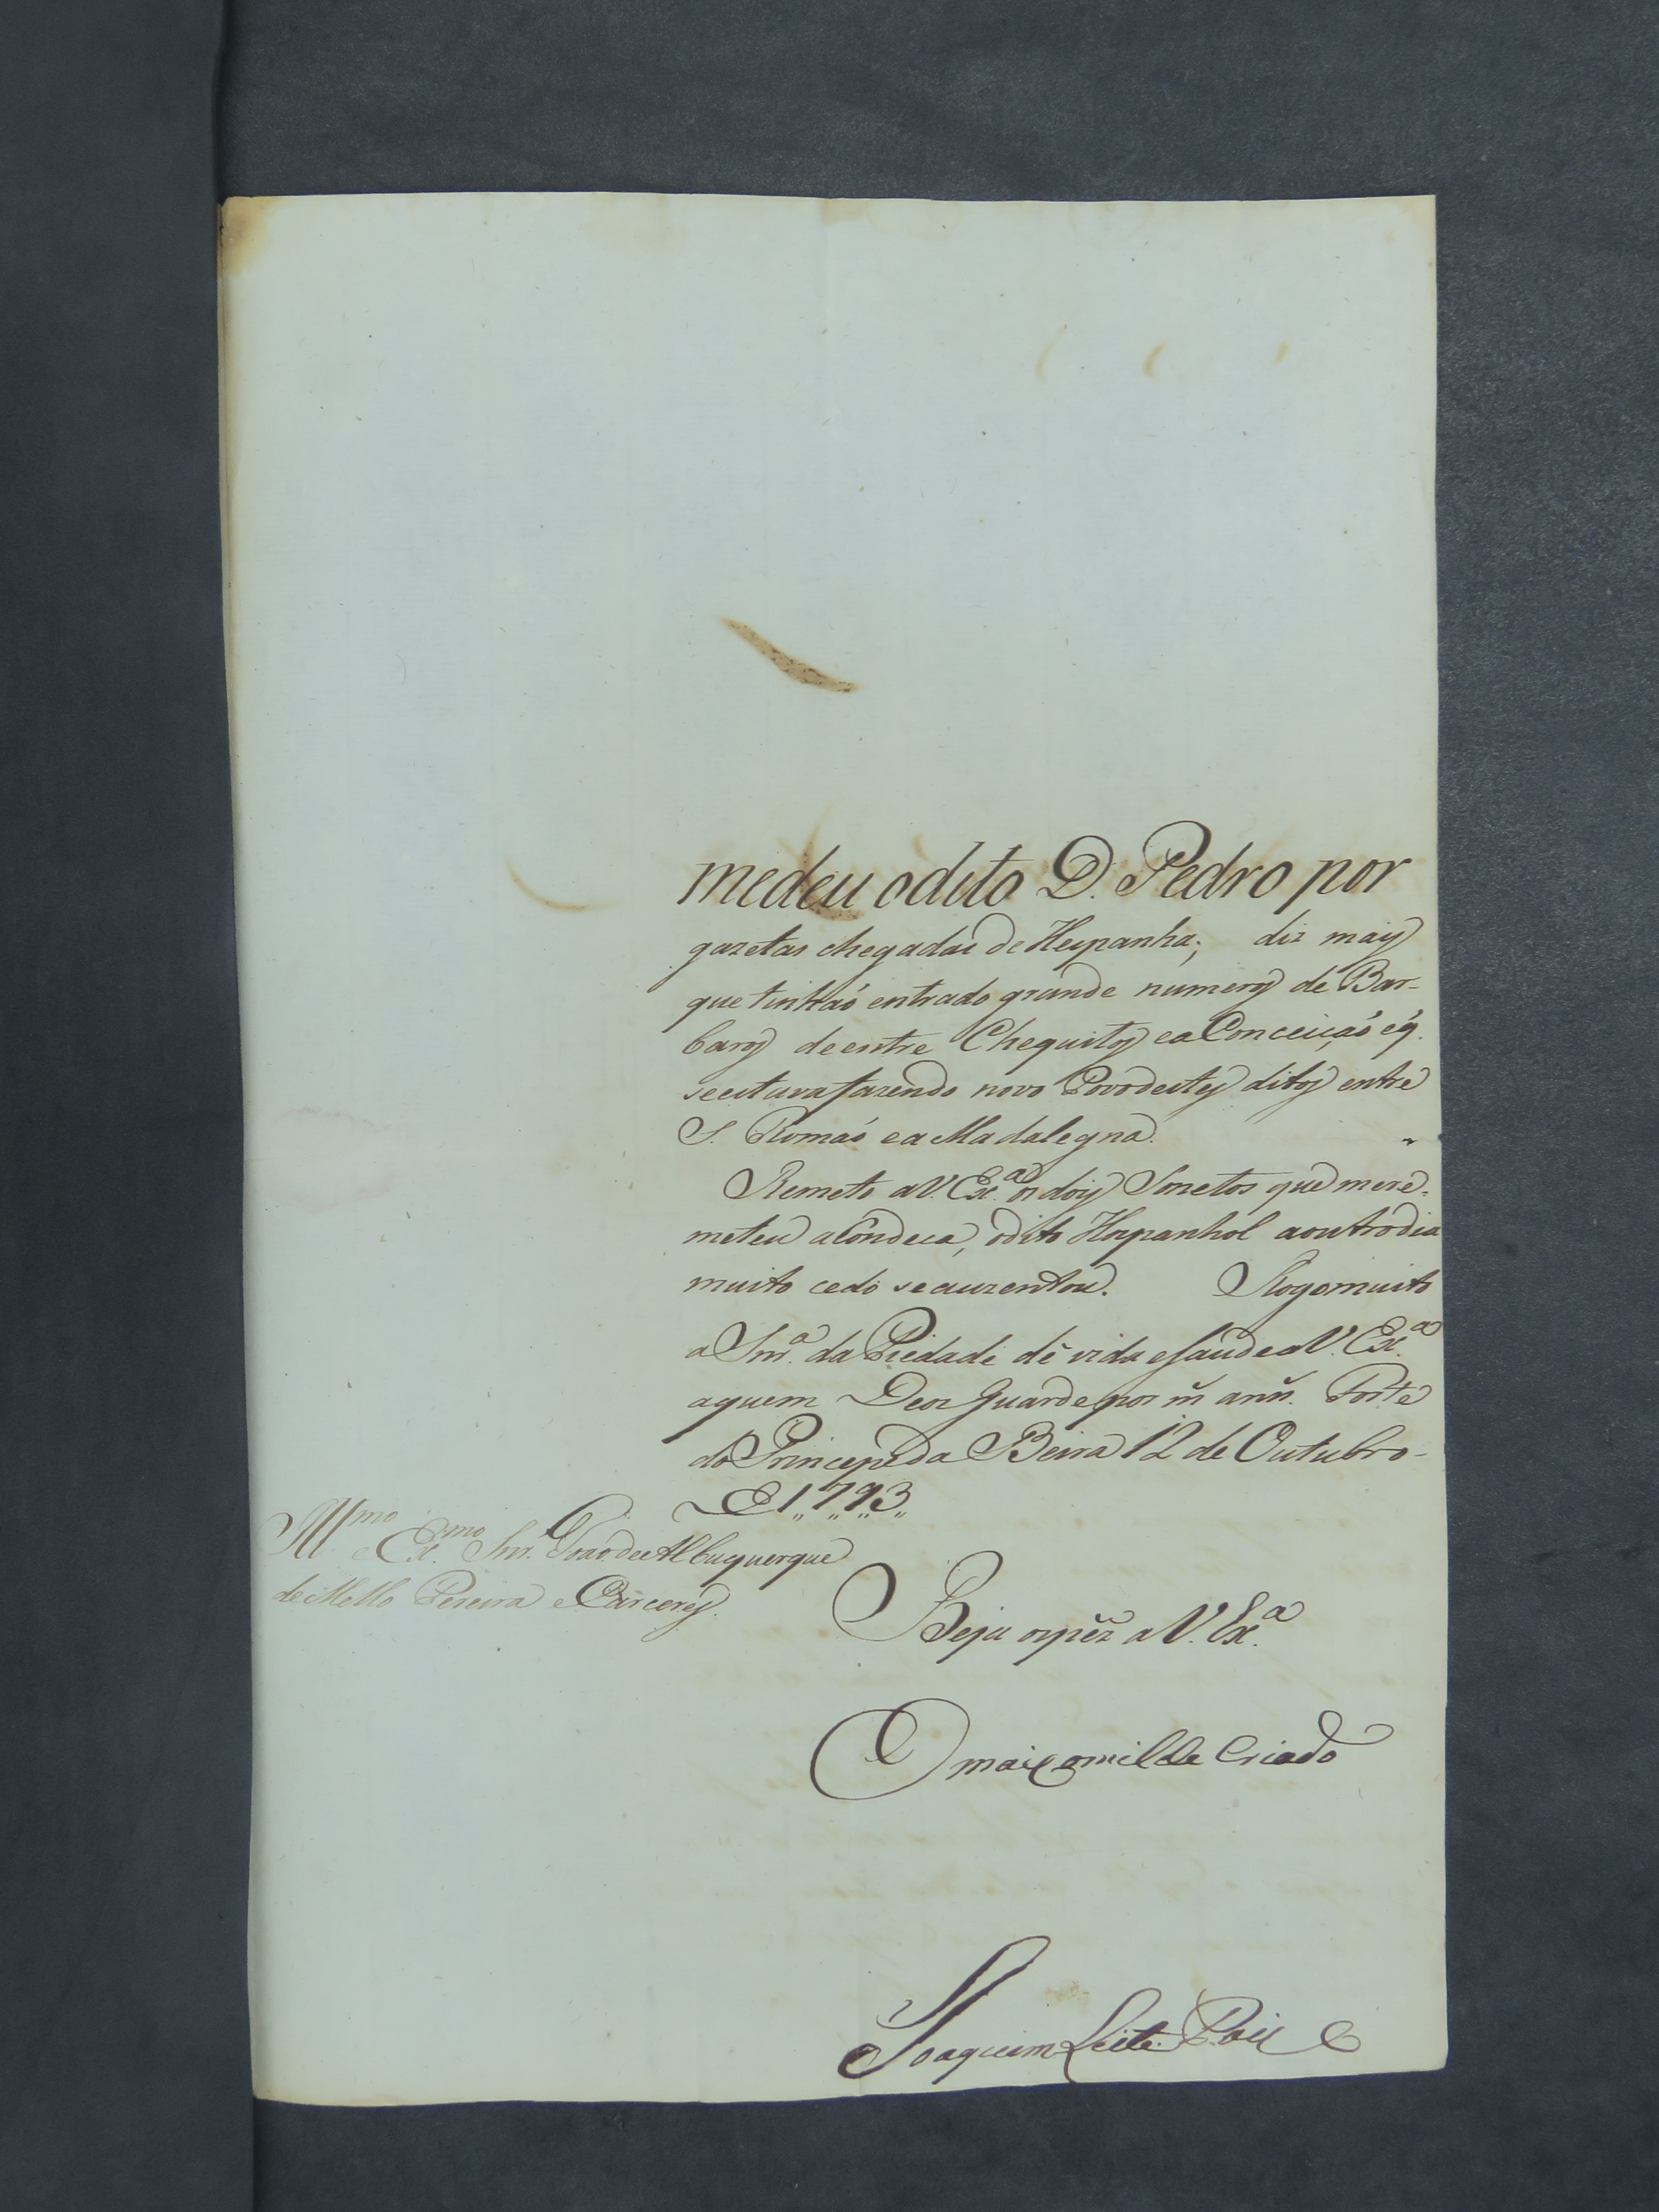 medeu odito D. Pedro por
gazetas chegadas de Hespanha; diz mais
que tinhaó entrado grande numeros de Bar-
baros de entre Chequitos ea Conceiçaó éq.
seestava fazendo novo Povo destes ditos entre
S. Romaó ea Madalegna.
Remeto aV. Exª. os dois Sonetos que mere-
meteu aCondeca, odito Hespanhol aoutrodia
muito cedo seauzentou. Rogo muito
a Snrª. da Piedade dê vida esaude aV. Exª.
aquem Deos Guarde por m̃ ann̄. Forte
do Principe da Beira 12 de Outubro-
de 1793,,
Illmo. e Exmo. Snr. Joaó de Albuquerque
de Mello Pereira e Carceres.
Beja os pez a V. Exª.
O mais omilde Criado
Joaquim Leite Pais